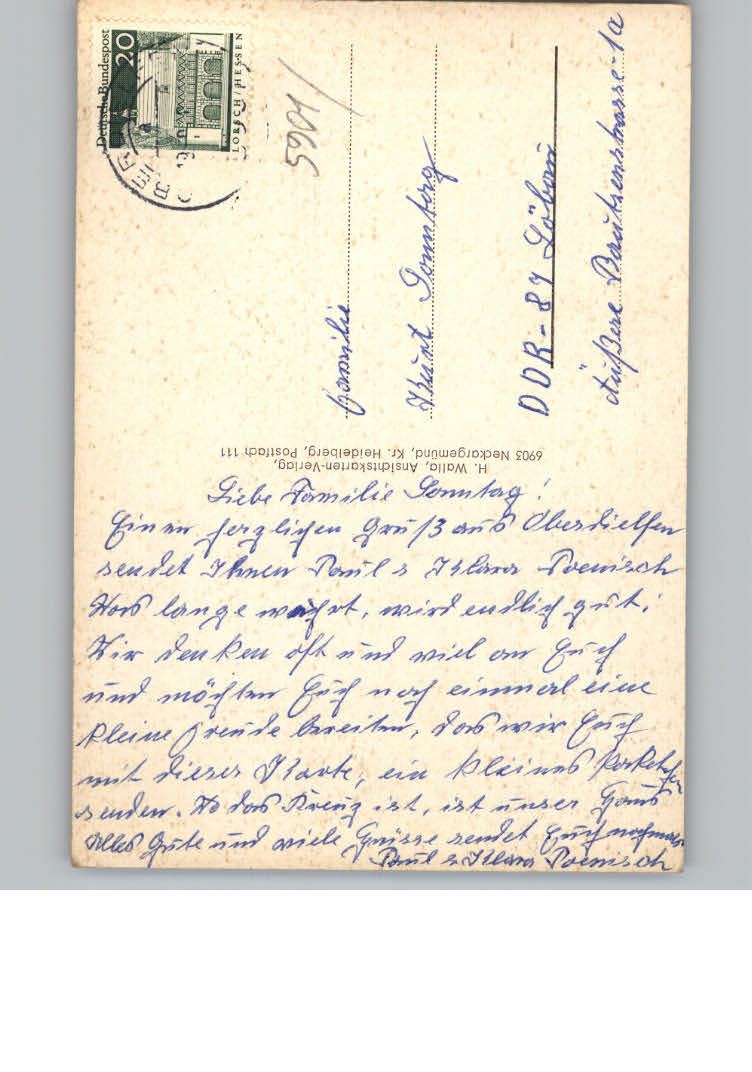 Deutsche Bundespost
20
LORSCH/HESSEN
OBER
5901/
Familie
Kurt Sonntag
DDR-87 Löbau
Äußere Bautzenstrasse-1a
H. Walla, Ansichtskarten-Verlag,
6903 Neckargemünd, Kr. Heidelberg, Postfach 111
Liebe Familie Sonntag!
Einen herzlichen Gruß aus Oberdielfen
sendet Ihnen Paul & Klara Poenisch
Was lange währt, wird endlich gut!
Wir denken oft und viel an Euch
und möchten Euch noch einmal eine
kleine Freude bereiten, das wir Euch
mit dieser Karte, ein kleines Paketchen
senden. Wo das Kreuz ist, ist unser Haus
Alles Gute und viele Grüsse sendet Euch nochmals
Paul & Klara Poenisch